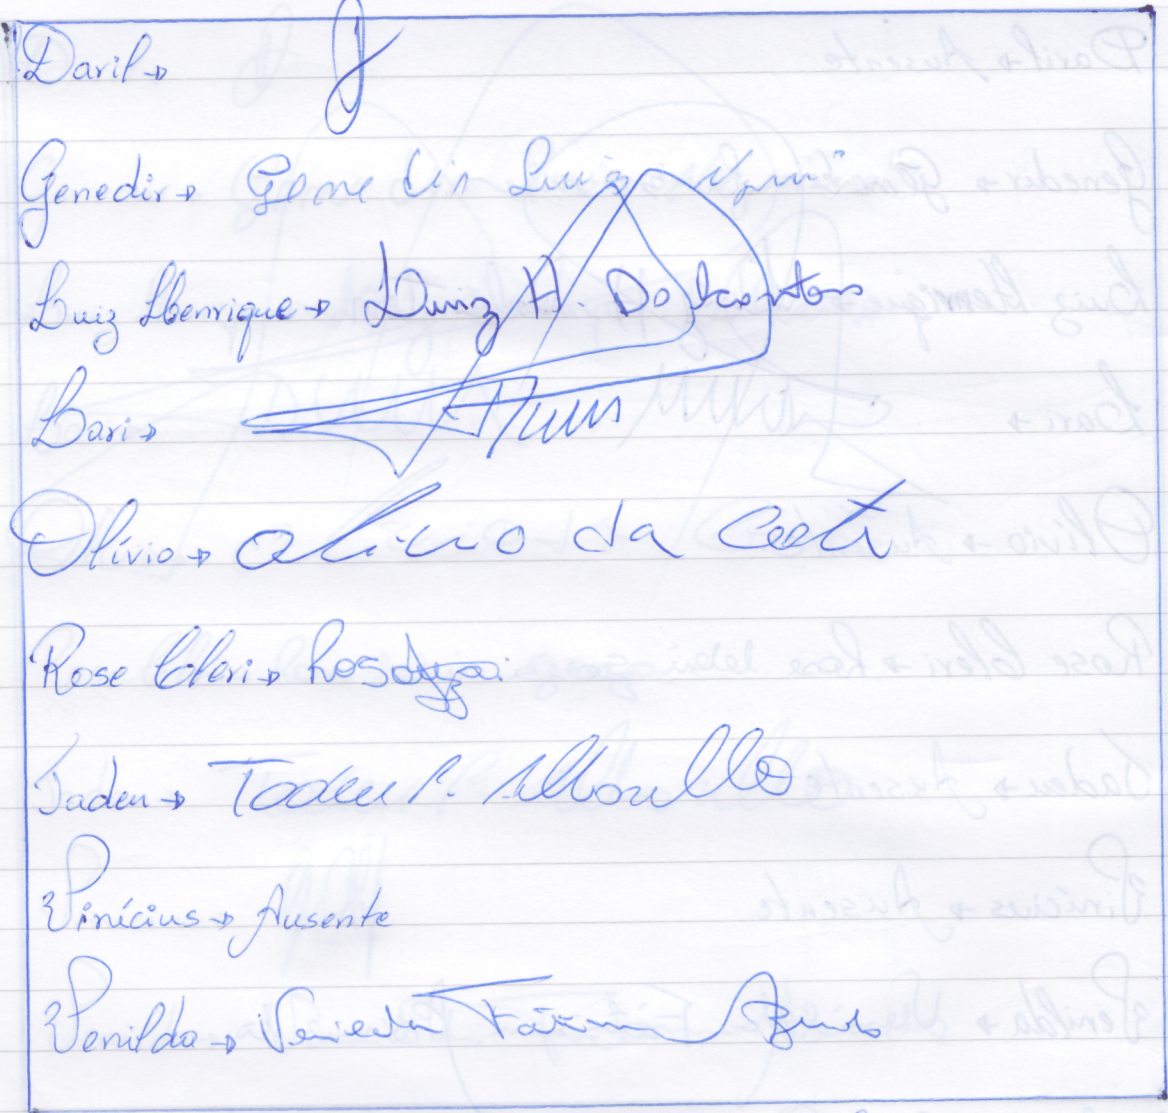 Daril→
Genedir→ Genedir Luiz
Luiz Henrique→ Luiz H. Dos Santos
Lari→
Olívio→ Olivio da Costa
Rose Cleri→ Rose
Tadeu→ Tadeu P.
Vinícius→ Ausente
Venilda→ Venilda Fátima